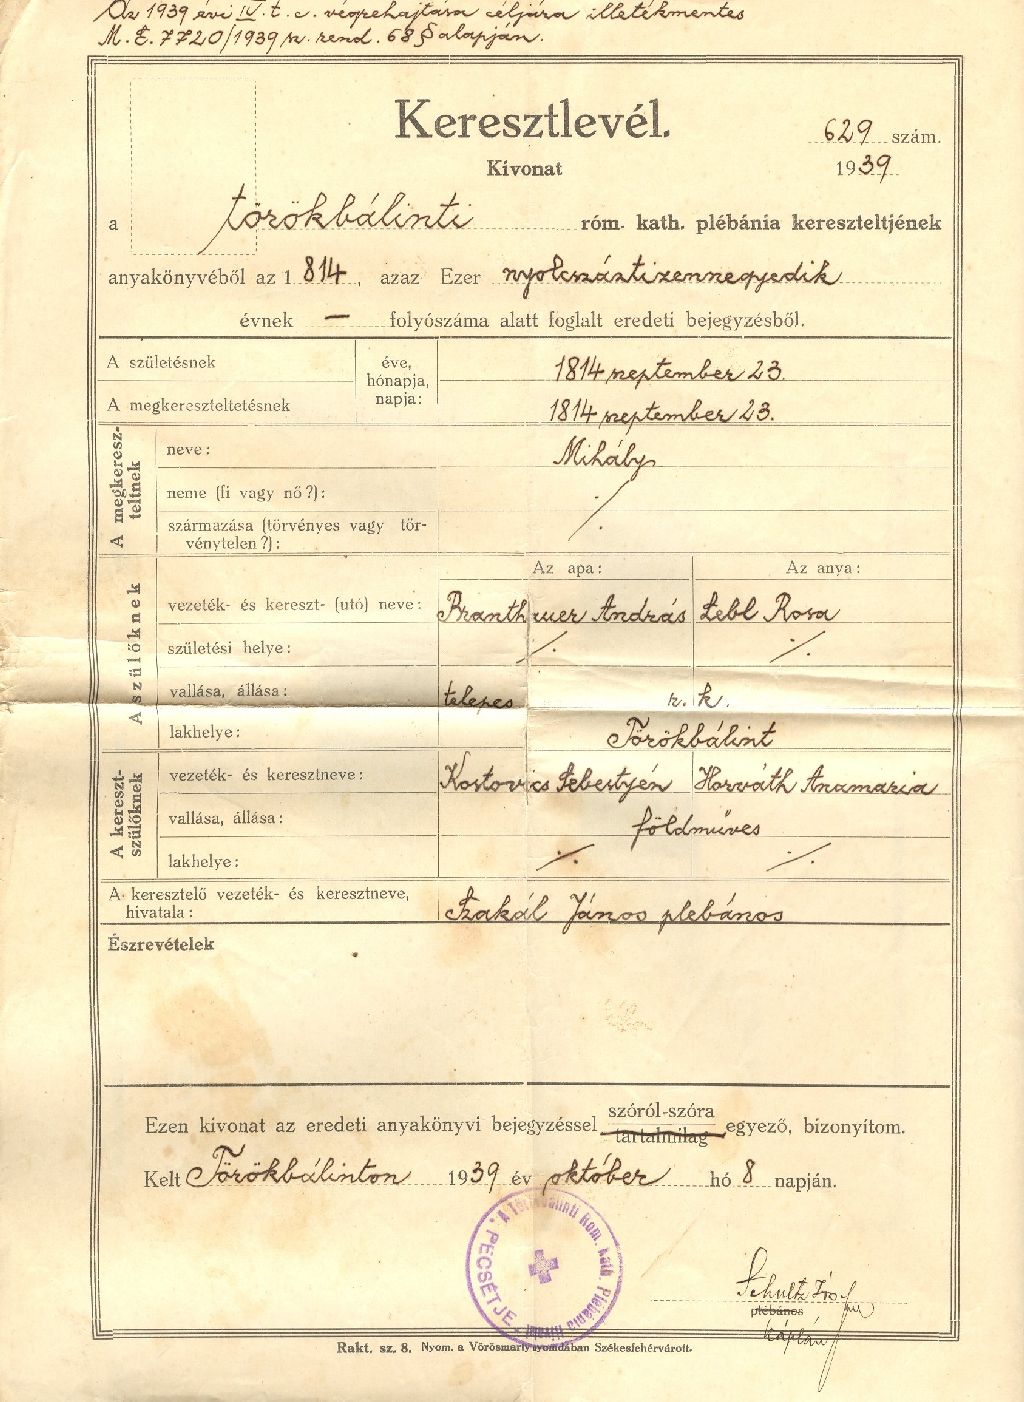 Az 1939 évi IV. t. c. végrehajtása céljára illetékmentes
M. E. 7720/1939 sz. rend. 68 § alapján.
Keresztlevél.
629 szám.
Kivonat
1939
a törökbálinti róm. kath. plébánia kereszteltjének
anyakönyvéből az 1814, azaz Ezer nyolcszáztizennegyedik
évnek — folyószáma alatt foglalt eredeti bejegyzésből.
A születésnek
éve, hónapja, napja:
1814 szeptember 23.
A megkereszteltetésnek
1814 szeptember 23.
A megkeresz-
teltnek
neve: Mihály
neme (fi vagy nő?):
származása (törvényes vagy tör-
vénytelen?):
·/·
A szülőknek
Az apa: Az anya:
vezeték- és kereszt- (utó) neve: Branthauer András Lebl Rosa
születési helye: ·/· ·/·
vallása, állása: telepes r. k.
lakhelye: Törökbálint
A kereszt-
szülőknek
vezeték- és keresztneve: Kostovics Sebestyén Horváth Anamaria
vallása, állása: földműves
lakhelye: ·/· ·/·
A keresztelő vezeték- és keresztneve,
hivatala: Szakál János plebános
Észrevételek
Ezen kivonat az eredeti anyakönyvi bejegyzéssel szóról-szóra tartalmilag egyező, bizonyítom.
Kelt Törökbálinton 1939 év október hó 8 napján.
A Törökbálinti Rom. kath. Plébánia Hivatal PECSÉTJE.
Schultz
plébános
káplán
Rakt. sz. 8. Nyom. a Vörösmarty nyomdában Székesfehérvárott.